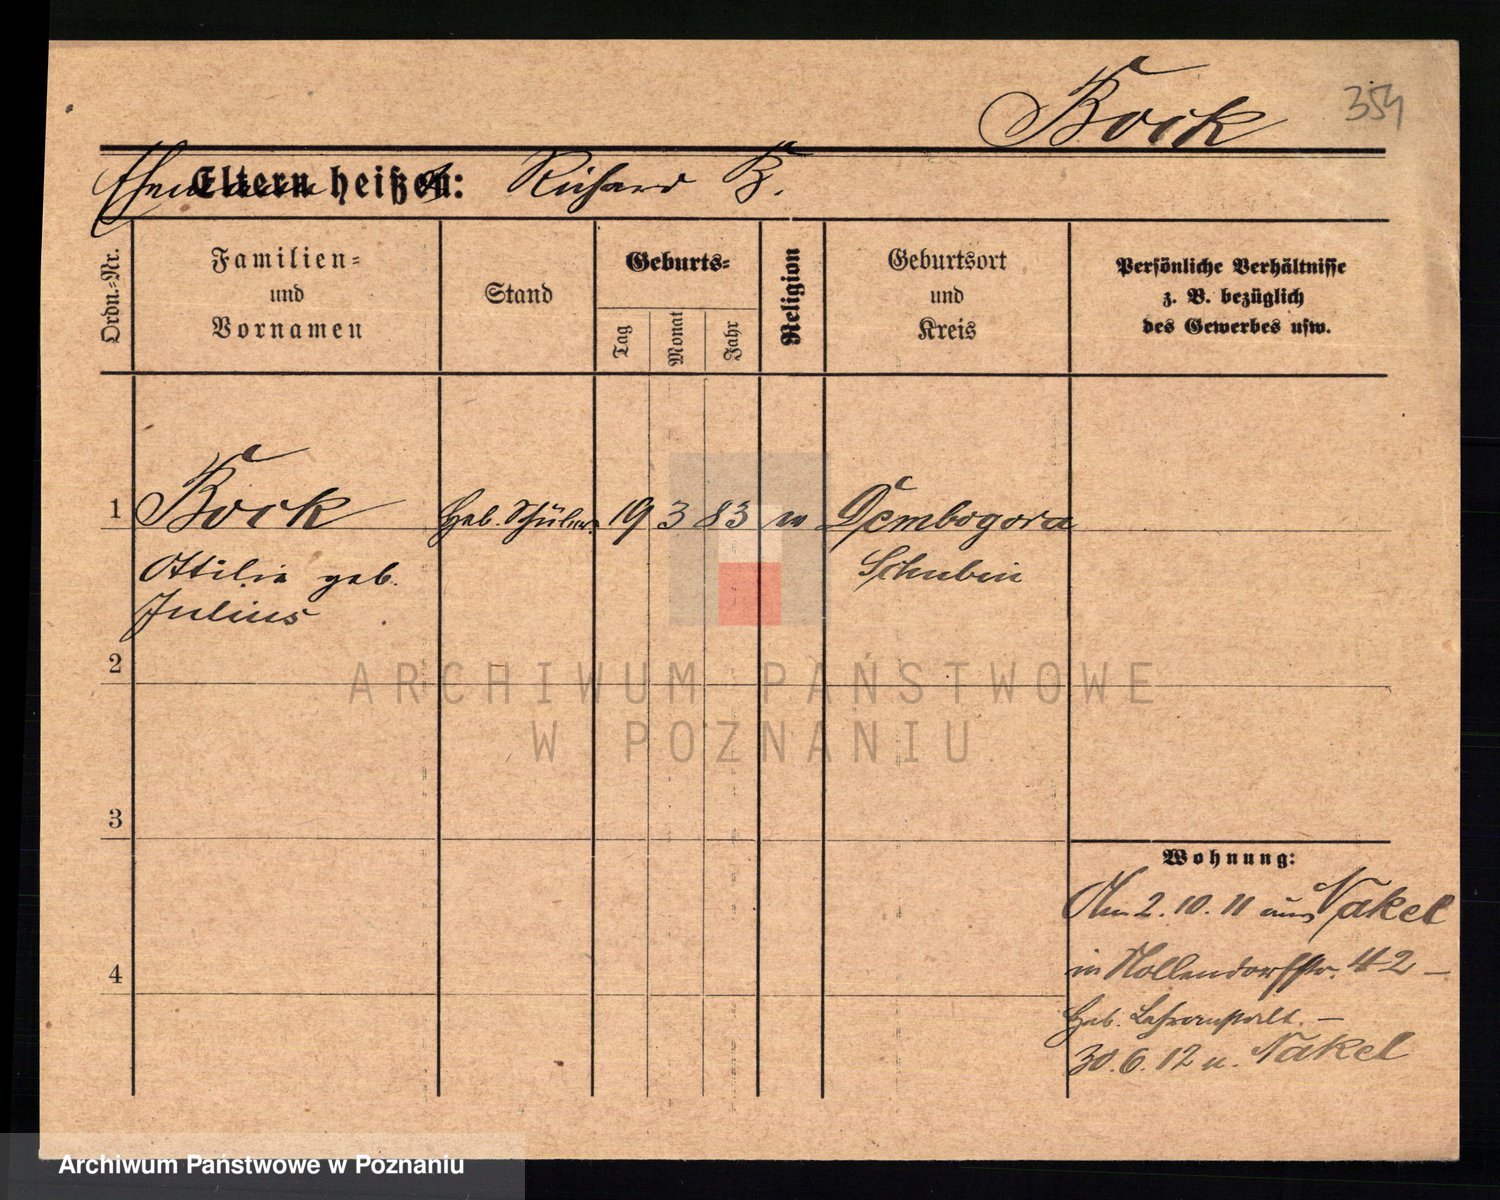 Bock
354
Ehemann
Eltern heißen: Richard B.
Ordn.-Nr.
Familien-
und
Vornamen
Stand
Geburts-
Tag
Monat
Jahr
Religion
Geburtsort
und
Kreis
Persönliche Verhältnisse
z. B. bezüglich
des Gewerbes usw.
1 Bock Heb. Schüler. 19 3 83 Dembogora
Ottilie geb. Schubin
Julius
2
ARCHIWUM PAŃSTWOWE
W POZNANIU
3
Wohnung:
2.10.11 aus Nakel
4
in Nollendorfstr. 42 –
Heb. Lehranstalt. –
30.6.12 n. Nakel
Archiwum Państwowe w Poznaniu